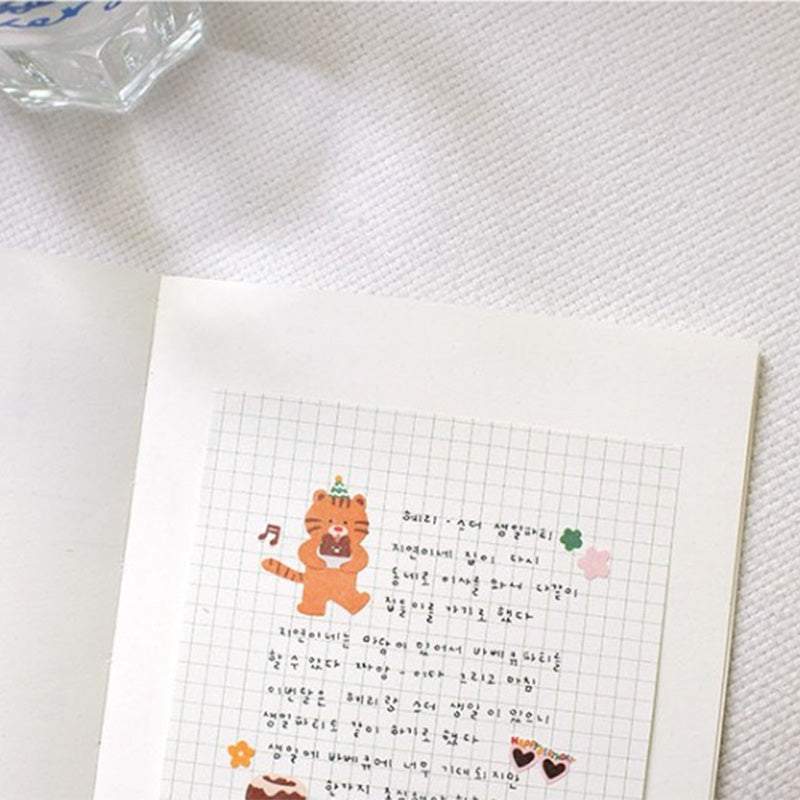 헤리 · 쏘더 생일파티
지연이네 집이 다시
동네로 이사를 와서 다같이
집들이를 가기로 했다
지연이네는 마당이 있어서 바베큐파티를
할 수 있었다 짜앙 - 이다 그리고 마침
이번달은 헤리랑 쏘더 생일이 있으니
생일파티도 같이 하기로 했다
생일에 바베큐에 너무 기대되지만
한가지
Happy Birthday